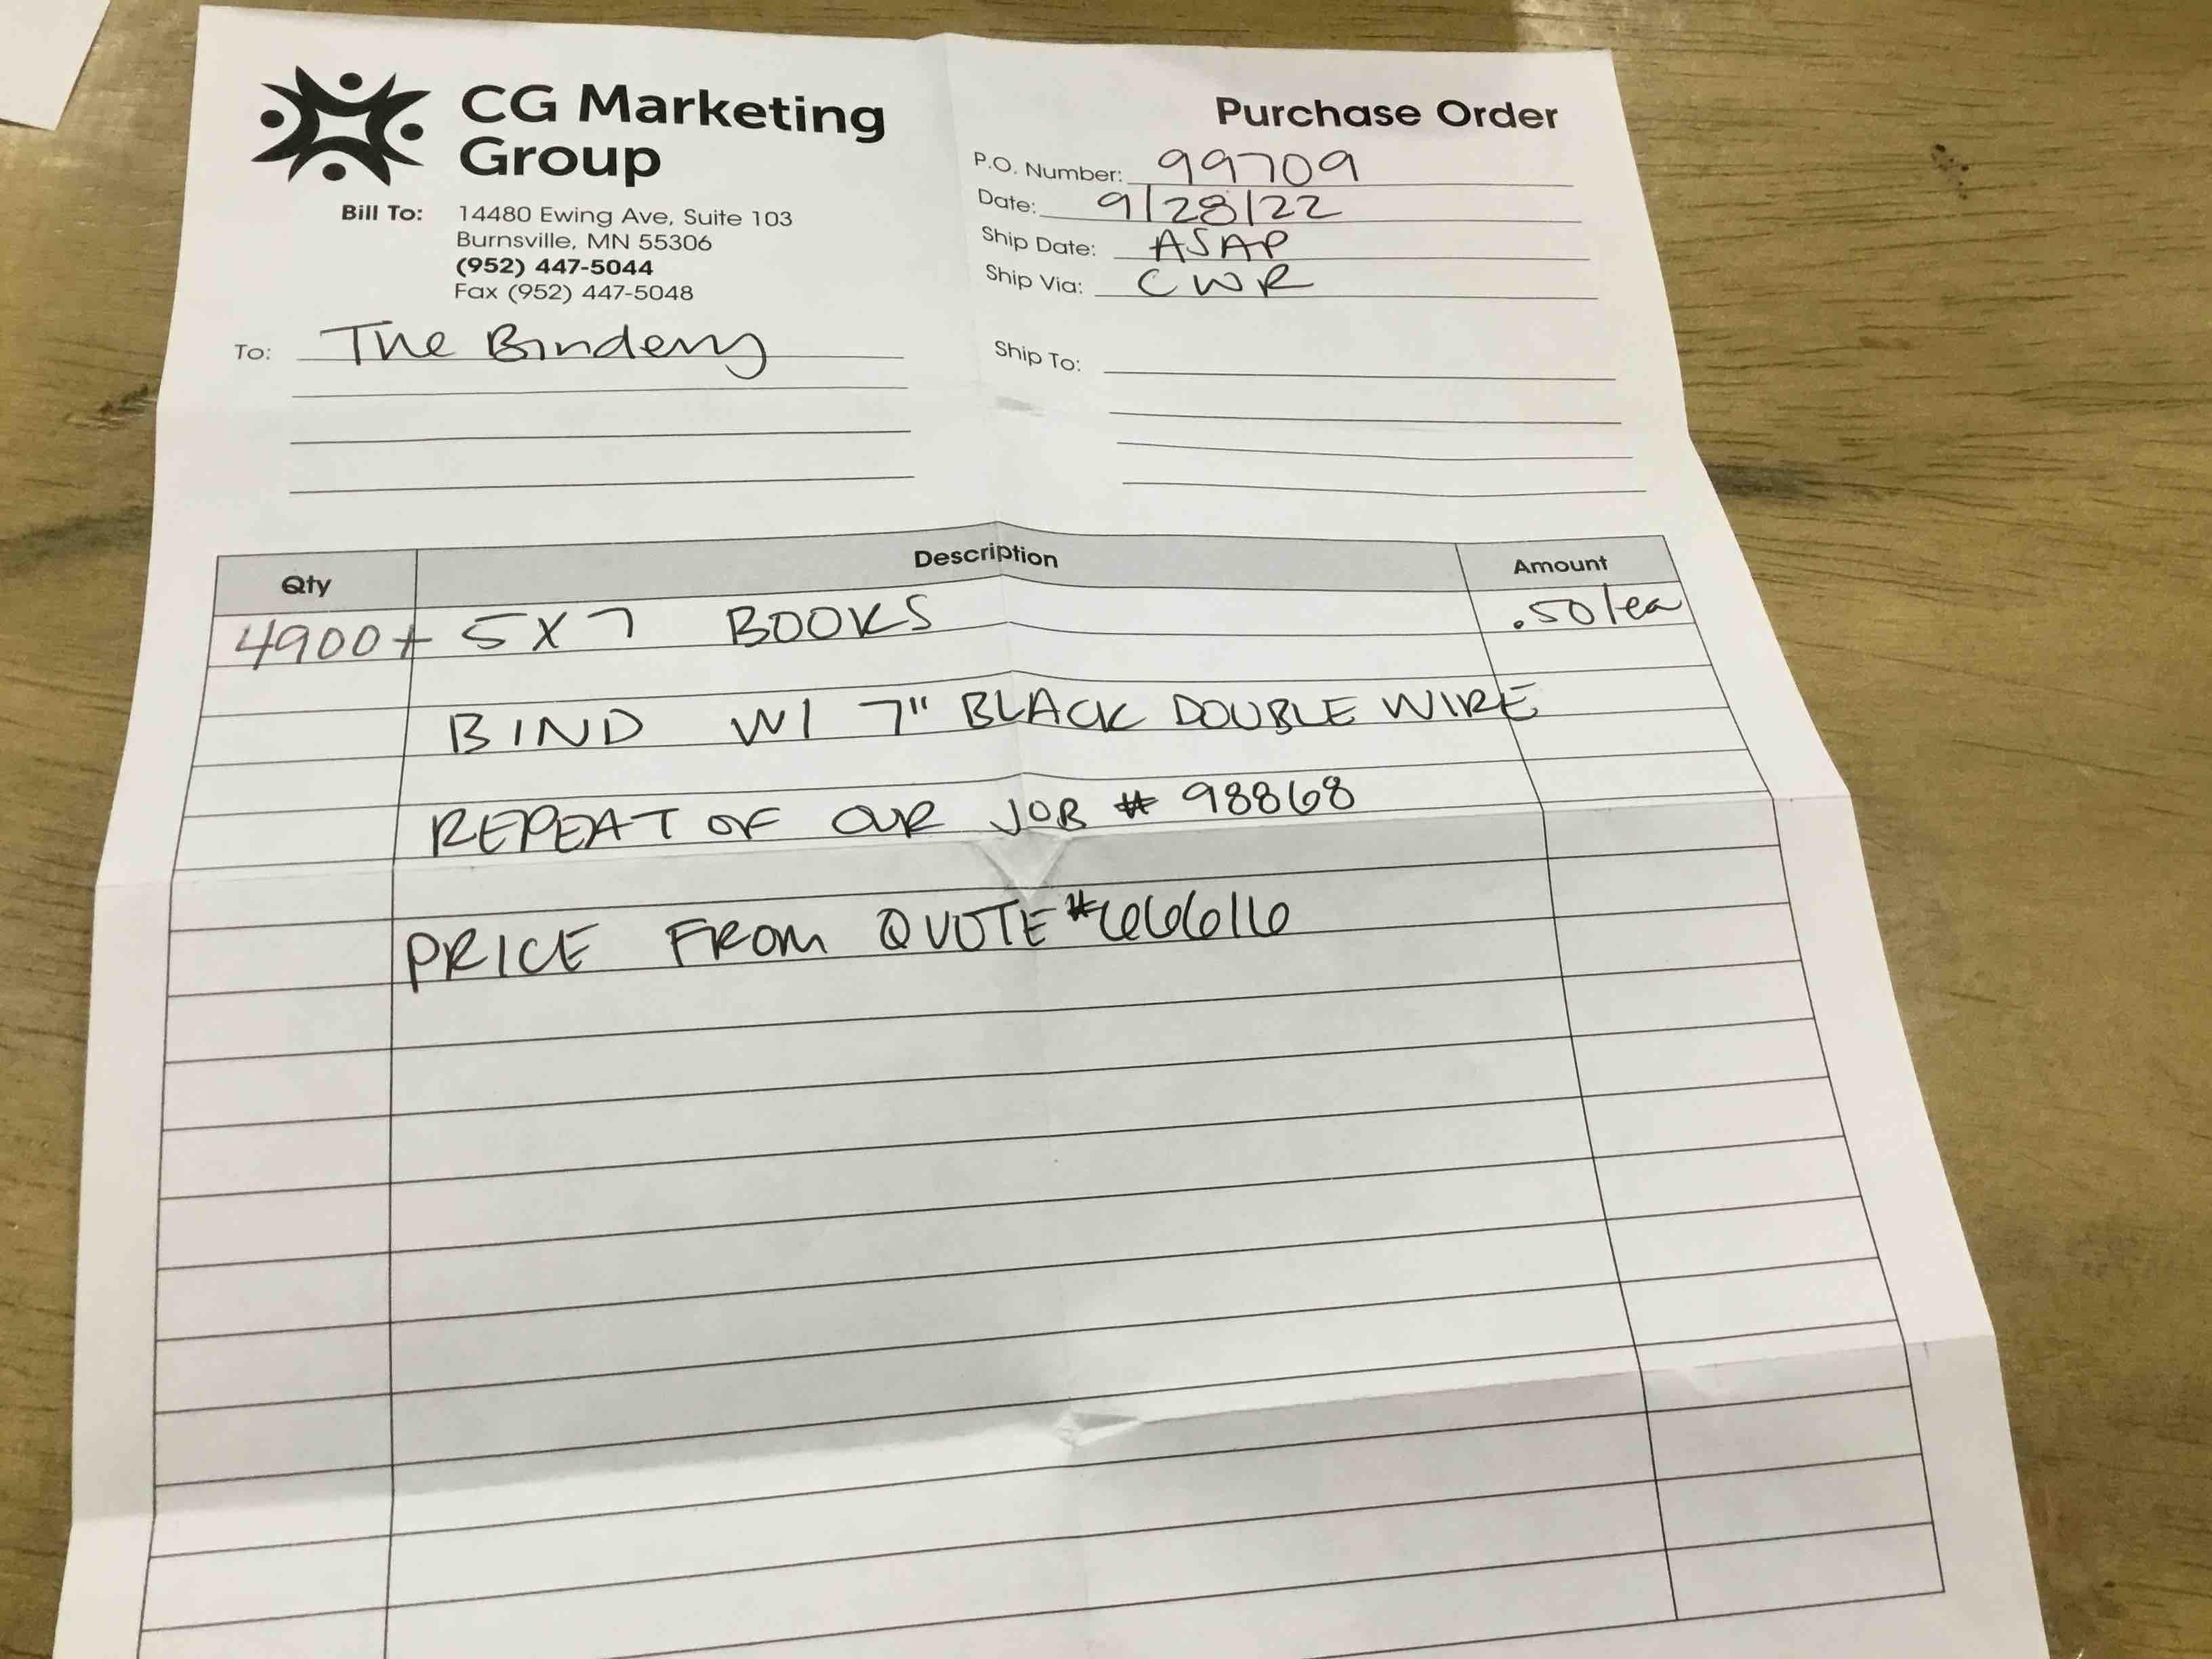 CG Marketing
Group
Purchase Order
P.O. Number: 99709
Date: 9/28/22
Ship Date: ASAP
Ship Via: CWR
Bill To: 14480 Ewing Ave, Suite 103
Burnsville, MN 55306
(952) 447-5044
Fax (952) 447-5048
To: The Bindery
Ship To:
Qty Description Amount
4900+ 5X7 BOOKS .50/ea
BIND W/ 7" BLACK DOUBLE WIRE
REPEAT OF OUR JOB # 98868
PRICE FROM QUOTE #66616